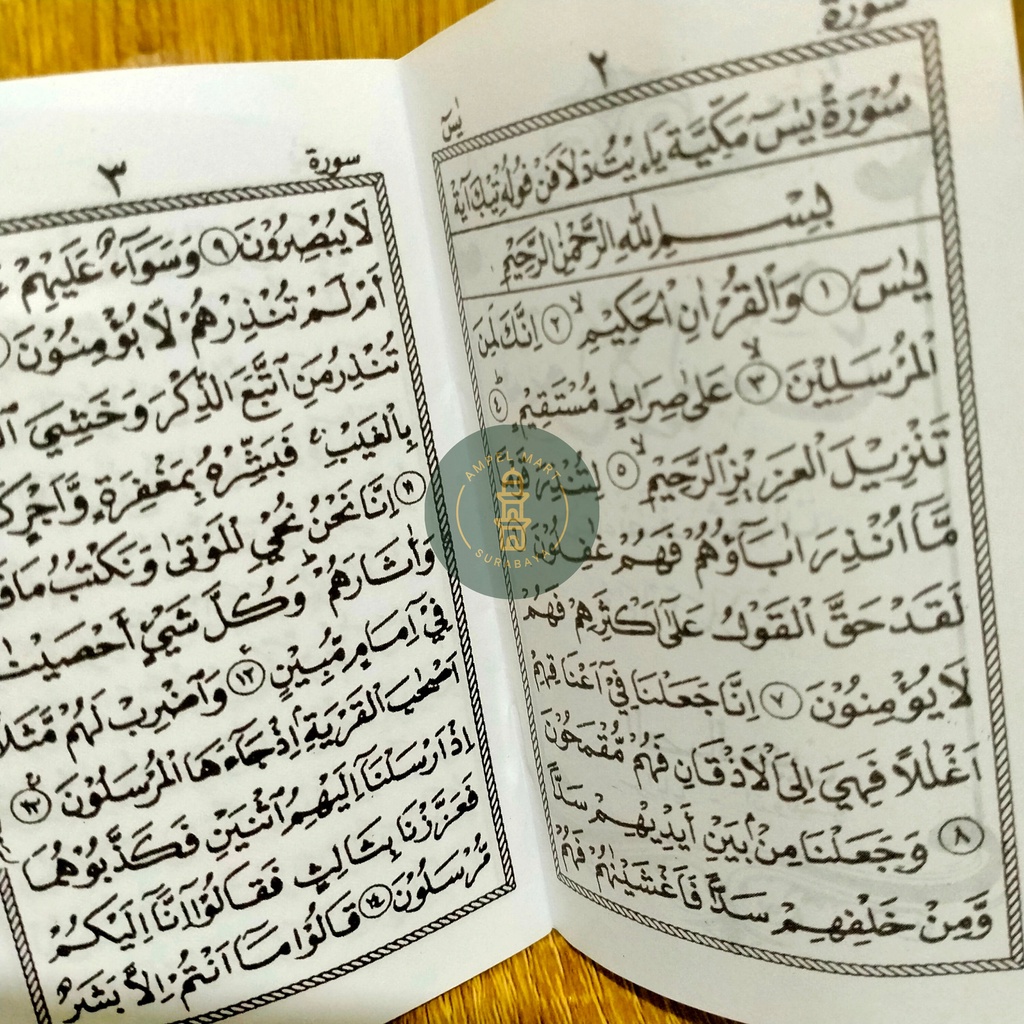 سورة
٢
يٰسٓ
سُوْرَةُ يٰسٓ مَكِّيَّة
بِسْــــمِ اللهِ الرَّحْمٰنِ الرَّحِيْمِ
يٰسٓ ١ وَالْقُرْاٰنِ الْحَكِيْمِ ٢ اِنَّكَ لَمِنَ
الْمُرْسَلِيْنَ ٣ عَلٰى صِرَاطٍ مُّسْتَقِيْمٍ ٤
تَنْزِيْلَ الْعَزِيْزِ الرَّحِيْمِ ٥
مَّا اُنْذِرَ اٰبَاؤُهُمْ فَهُمْ غٰفِلُوْنَ
لَقَدْ حَقَّ الْقَوْلُ عَلٰى اَكْثَرِهِمْ فَهُمْ
لَا يُؤْمِنُوْنَ ٧ اِنَّا جَعَلْنَا فِيْٓ اَعْنَاقِهِمْ
اَغْلٰلًا فَهِيَ اِلَى الْاَذْقَانِ فَهُمْ مُّقْمَحُوْنَ
٨ وَجَعَلْنَا مِنْۢ بَيْنِ اَيْدِيْهِمْ سَدًّا
وَّمِنْ خَلْفِهِمْ سَدًّا فَاَغْشَيْنٰهُمْ فَهُمْ
سورة
٣
لَا يُبْصِرُوْنَ ٩ وَسَوَآءٌ عَلَيْهِمْ
اَمْ لَمْ تُنْذِرْهُمْ لَا يُؤْمِنُوْنَ
تُنْذِرُ مَنِ اتَّبَعَ الذِّكْرَ وَخَشِيَ
بِالْغَيْبِ فَبَشِّرْهُ بِمَغْفِرَةٍ وَّاَجْرٍ
١١ اِنَّا نَحْنُ نُحْيِ الْمَوْتٰى وَنَكْتُبُ
وَاٰثَارَهُمْ وَكُلَّ شَيْءٍ
فِيْٓ اِمَامٍ مُّبِيْنٍ ١٢ وَاضْرِبْ لَهُمْ مَّثَلًا
اَصْحٰبَ الْقَرْيَةِ اِذْ جَآءَهَا الْمُرْسَلُوْنَ ١٣
اِذْ اَرْسَلْنَآ اِلَيْهِمُ اثْنَيْنِ فَكَذَّبُوْهُمَا
فَعَزَّزْنَا بِثَالِثٍ فَقَالُوْٓا اِنَّآ اِلَيْكُمْ
مُّرْسَلُوْنَ ١٤ قَالُوْا مَآ اَنْتُمْ اِلَّا بَشَرٌ
AMPEL MART
SURABAYA